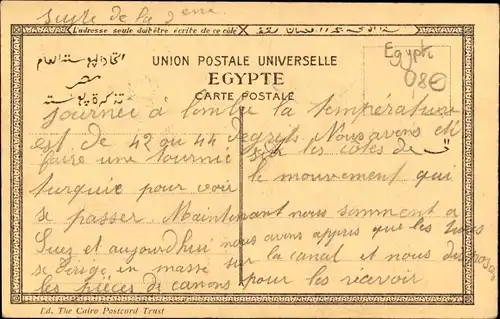 suite de la 2eme
L'adresse seule doit être écrite de ce côté
اتحاد البوستة العام
مصر
تذكرة بوستة
UNION POSTALE UNIVERSELLE
EGYPTE
CARTE POSTALE
Egypte
08€
journée à lombre la température
est de 42 au 44 degrés Nous avons été
faire une tournée sur les côtes de
turquie pour voir le mouvement qui
se passer. Maintenant nous somment a
Suez et aujourdhui nous avons appris que les turcs
se dirige en masse sur la canal et nous disposos
les pièces de canons pour les recevoir
Ed. The Cairo Postcard Trust